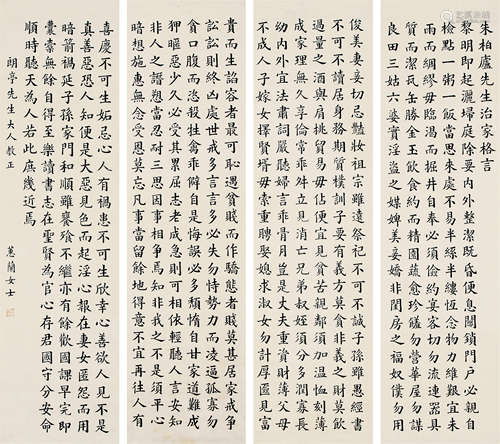 朱柏廬先生治家格言
黎明即起灑掃庭除要內外整潔既昏便息關鎖門戶必親自
檢點一粥一飯當思來處不易半絲半縷恆念物力維艱宜未
雨而綢繆毋臨渴而掘井自奉必須儉約宴客切勿流連器具
質而潔瓦缶勝金玉飲食約而精園蔬愈珍饈勿營華屋勿謀
良田三姑六婆實淫盜之媒婢美妾嬌非閨房之福奴僕勿用
俊美妻妾切忌豔妝祖宗雖遠祭祀不可不誠子孫雖愚經書
不可不讀居身務期質樸訓子要有義方莫貪非義之財莫飲
過量之酒與肩挑貿易毋佔便宜見貧苦親鄰須加溫恤刻薄
成家理無久享倫常乖舛立見消亡兄弟叔姪須分多潤寡長
幼內外宜法肅詞嚴聽婦言乖骨肉豈是丈夫重資財薄父母
不成人子嫁女擇賢壻毋索重聘娶媳求淑女勿計厚匳見富
貴而生諂容者最可恥遇貧賤而作驕態者賤莫甚居家戒爭
訟訟則終凶處世戒多言言多必失勿恃勢力而凌逼孤寡勿
貪口腹而恣殺牲禽乖僻自是悔誤必多頹惰自甘家道難成
狎暱惡少久必受其累屈志老成急則可相依輕聽人言安知
非人之譖愬當忍耐三思因事相爭焉知非我之不是須平心
暗想施惠無念受恩莫忘凡事當留餘地得意不宜再往人有
喜慶不可生妬忌心人有禍患不可生欣幸心善欲人見不是
真善惡恐人知便是大惡見色而起淫心報在妻女匿怨而用
暗箭禍延子孫家門和順雖饔飧不繼亦有餘歡國課早完即
囊橐無餘自得至樂讀書志在聖賢為官心存君國守分安命
順時聽天為人若此庶幾近焉
朗亭先生大人教正
蕙蘭女士